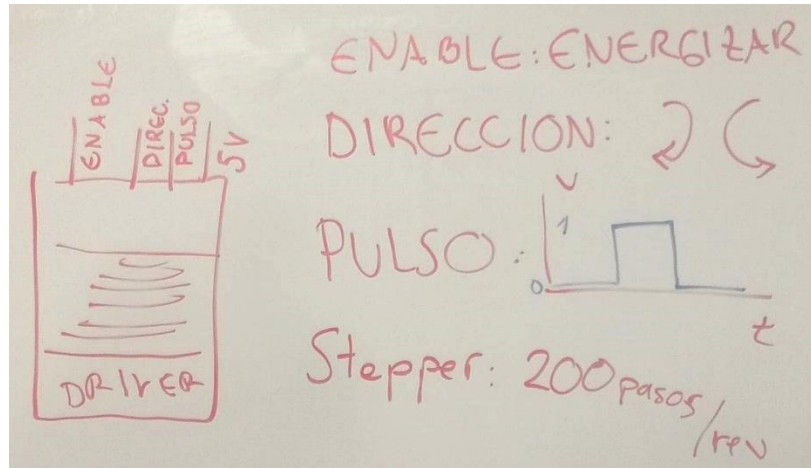 ENABLE
DIREC.
PULSO
5V
DRIVER
ENABLE: ENERGIZAR
DIRECCION:
PULSO:
V
1
0
t
Stepper: 200 pasos/rev